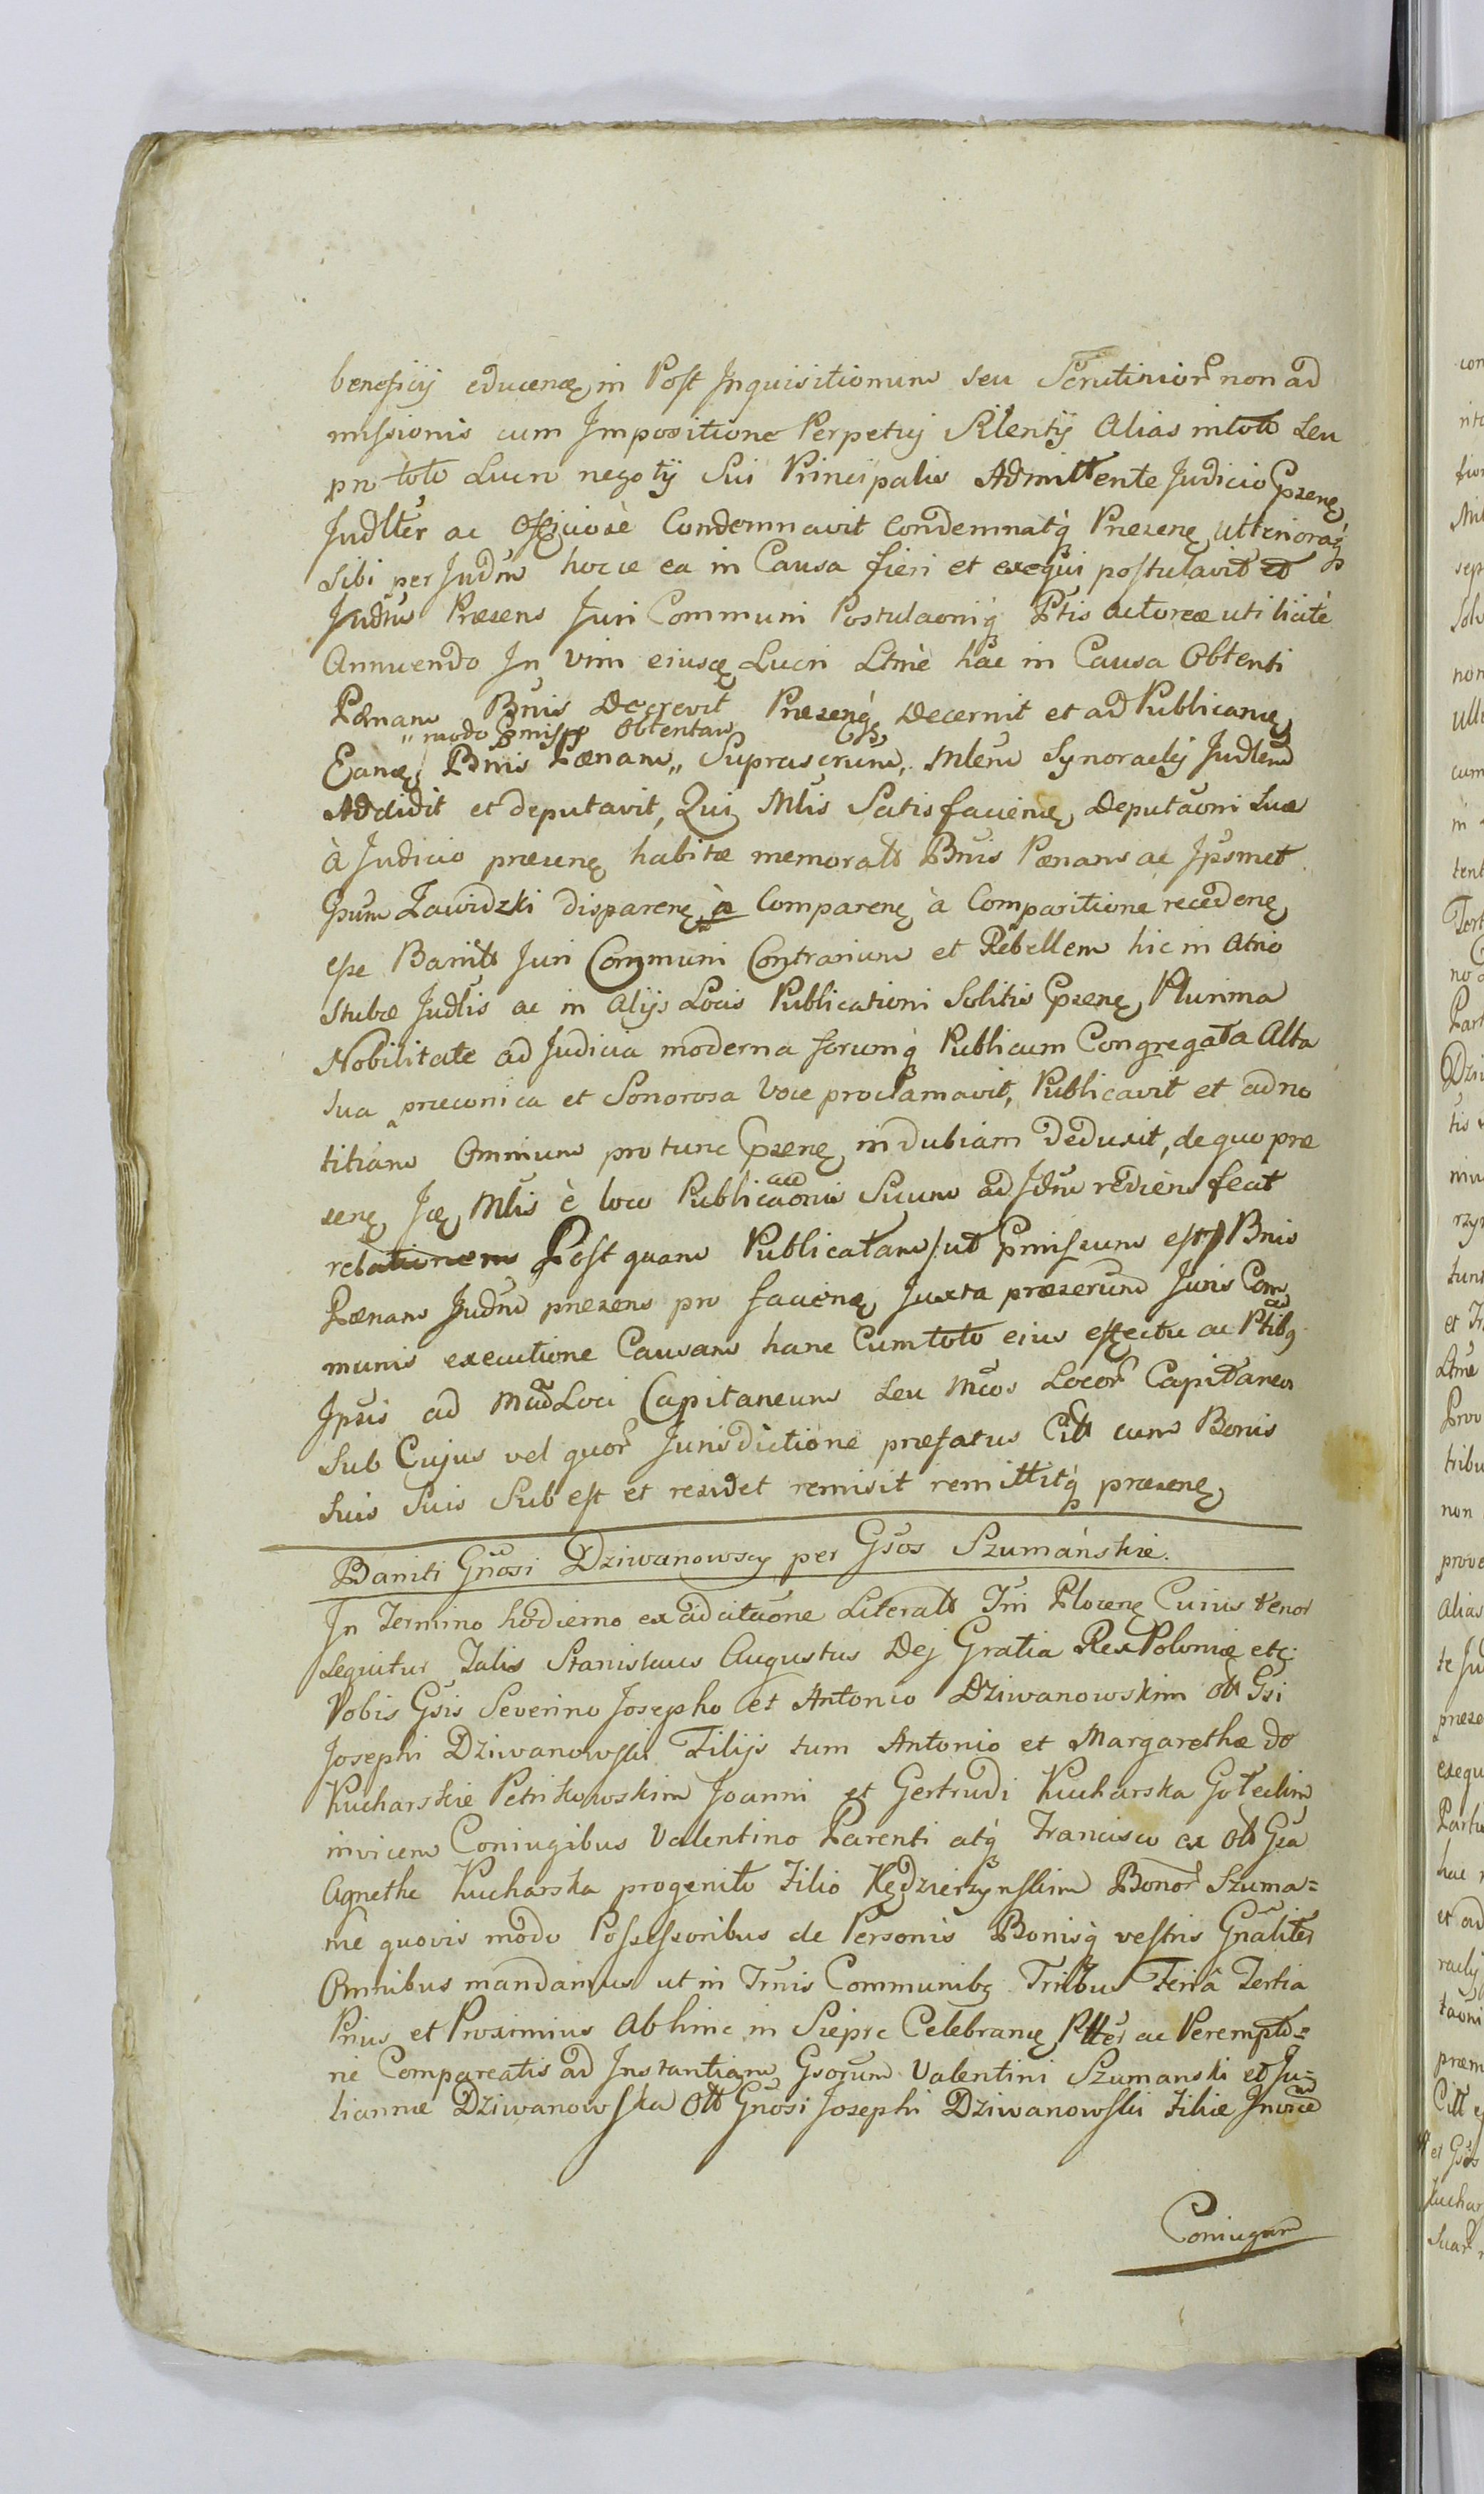 beneficij educenę in Post Inquisitionum seu Scrutinior̃ non ad
missionis cum Impositione Perpetuj Silentij Alias in toto seu
pro toto Lucro negotij Sui Principalis Admittente Judicio Pzenę
Judltr ac officiose Condemnavit Condemnatq́ Prezenę ulterioraq́
sibi per Judm hocce ea in Causa fieri et exequi postulavit et
Judm Præsens Juri Communi Postulaoniq́ Ptis actoreæ uti licite
Annuendo In vim eiusdę Lucri Ltmè hac in Causa Obtenti
Pænam Bnis Decrevit Prezenq́ Decernit et ad Publicanę
„modo Pmisso Obtentam
Eandę Bnis Pænam„ Suprascrum, Mlem Synoradij Judlem
Addidit et deputavit, Qui Mlis Satisfacienę Deputaoni Suæ
à Judicio præsenę habitæ memoratt Bnis Pænam ac Ipsmet
Gsum Zawidzki disparenę à Comparenę à Comparitione recedenę
esse Banitt Juri Communi Contrarium et Rebellem hic in Atrio
Stubæ Judlis ac in Alijs Locis Publicationi Solitis Pzenę Plurima
Nobilitate ad Judicia moderna forumq́ Publicum Congregata Alta
sua præconica et Sonorosa Voce proclamavit, Publicavit et ad no
titiam Omnium pro tunc Pzenę indubiam Deduxit, de quo præ
senę Ię Mlis è loco Publicaonis Suum ad Jdm rediens fecit
relationem Post quam Publicatam /ut Pmissum est/ Bnis
Pænam Judm præsens pro facienę Juxta præsrum Juris Com
munis executione Causam hanc Cum toto eius effectu ac Ptibą
Ipsis ad Mcum Loci Capitaneum seu Mcos Locor̃ Capitaneos
Sub Cujus vel quor̃ Jurisdictione præfatus Citt cum Bonis
Suis Suis Subest et residet remisit remittitq́ præsenę
Baniti Gnosi Dziwanowscy per Gsos Szumańskie.
In Termino hodierno ex ad citaone Literatt Tri Plocenę Cuius tenor
Sequitur Talis Stanislaus Augustus Dej Gratia Rex Poloniæ etc:
Vobis Gsis Severino Josepho et Antonio Dziwanowskim Ott Gsi
Josephi Dziwanowski Filijs tum Antonio et Margarethæ do
Kucharskie Petrikowskim Joanni et Gertrudi Kucharska Goleckim
invicem Coniugibus Valentino Parenti atq́ Francisco ex Ott Gsa
Agnethe Kucharska progenito Filio Kędzierzynskim Bonor̃ Szuma=
nie quovis modo Possessoribus de Personis Bonisq́ vestris Gnaliter
Omnibus mandamus ut in Trnis Communibą Tribus Feriâ Tertia
Prius et Proximius Abhinc in Sieprc Celebranę Ptter ac Perempto=
rie Compareatis ad Instantiam Gsorum Valentini Szumanski et Ju=
liannæ Dziwanowska Ott Gnosi Josephi Dziwanowski Filiæ Invice
Coniugum